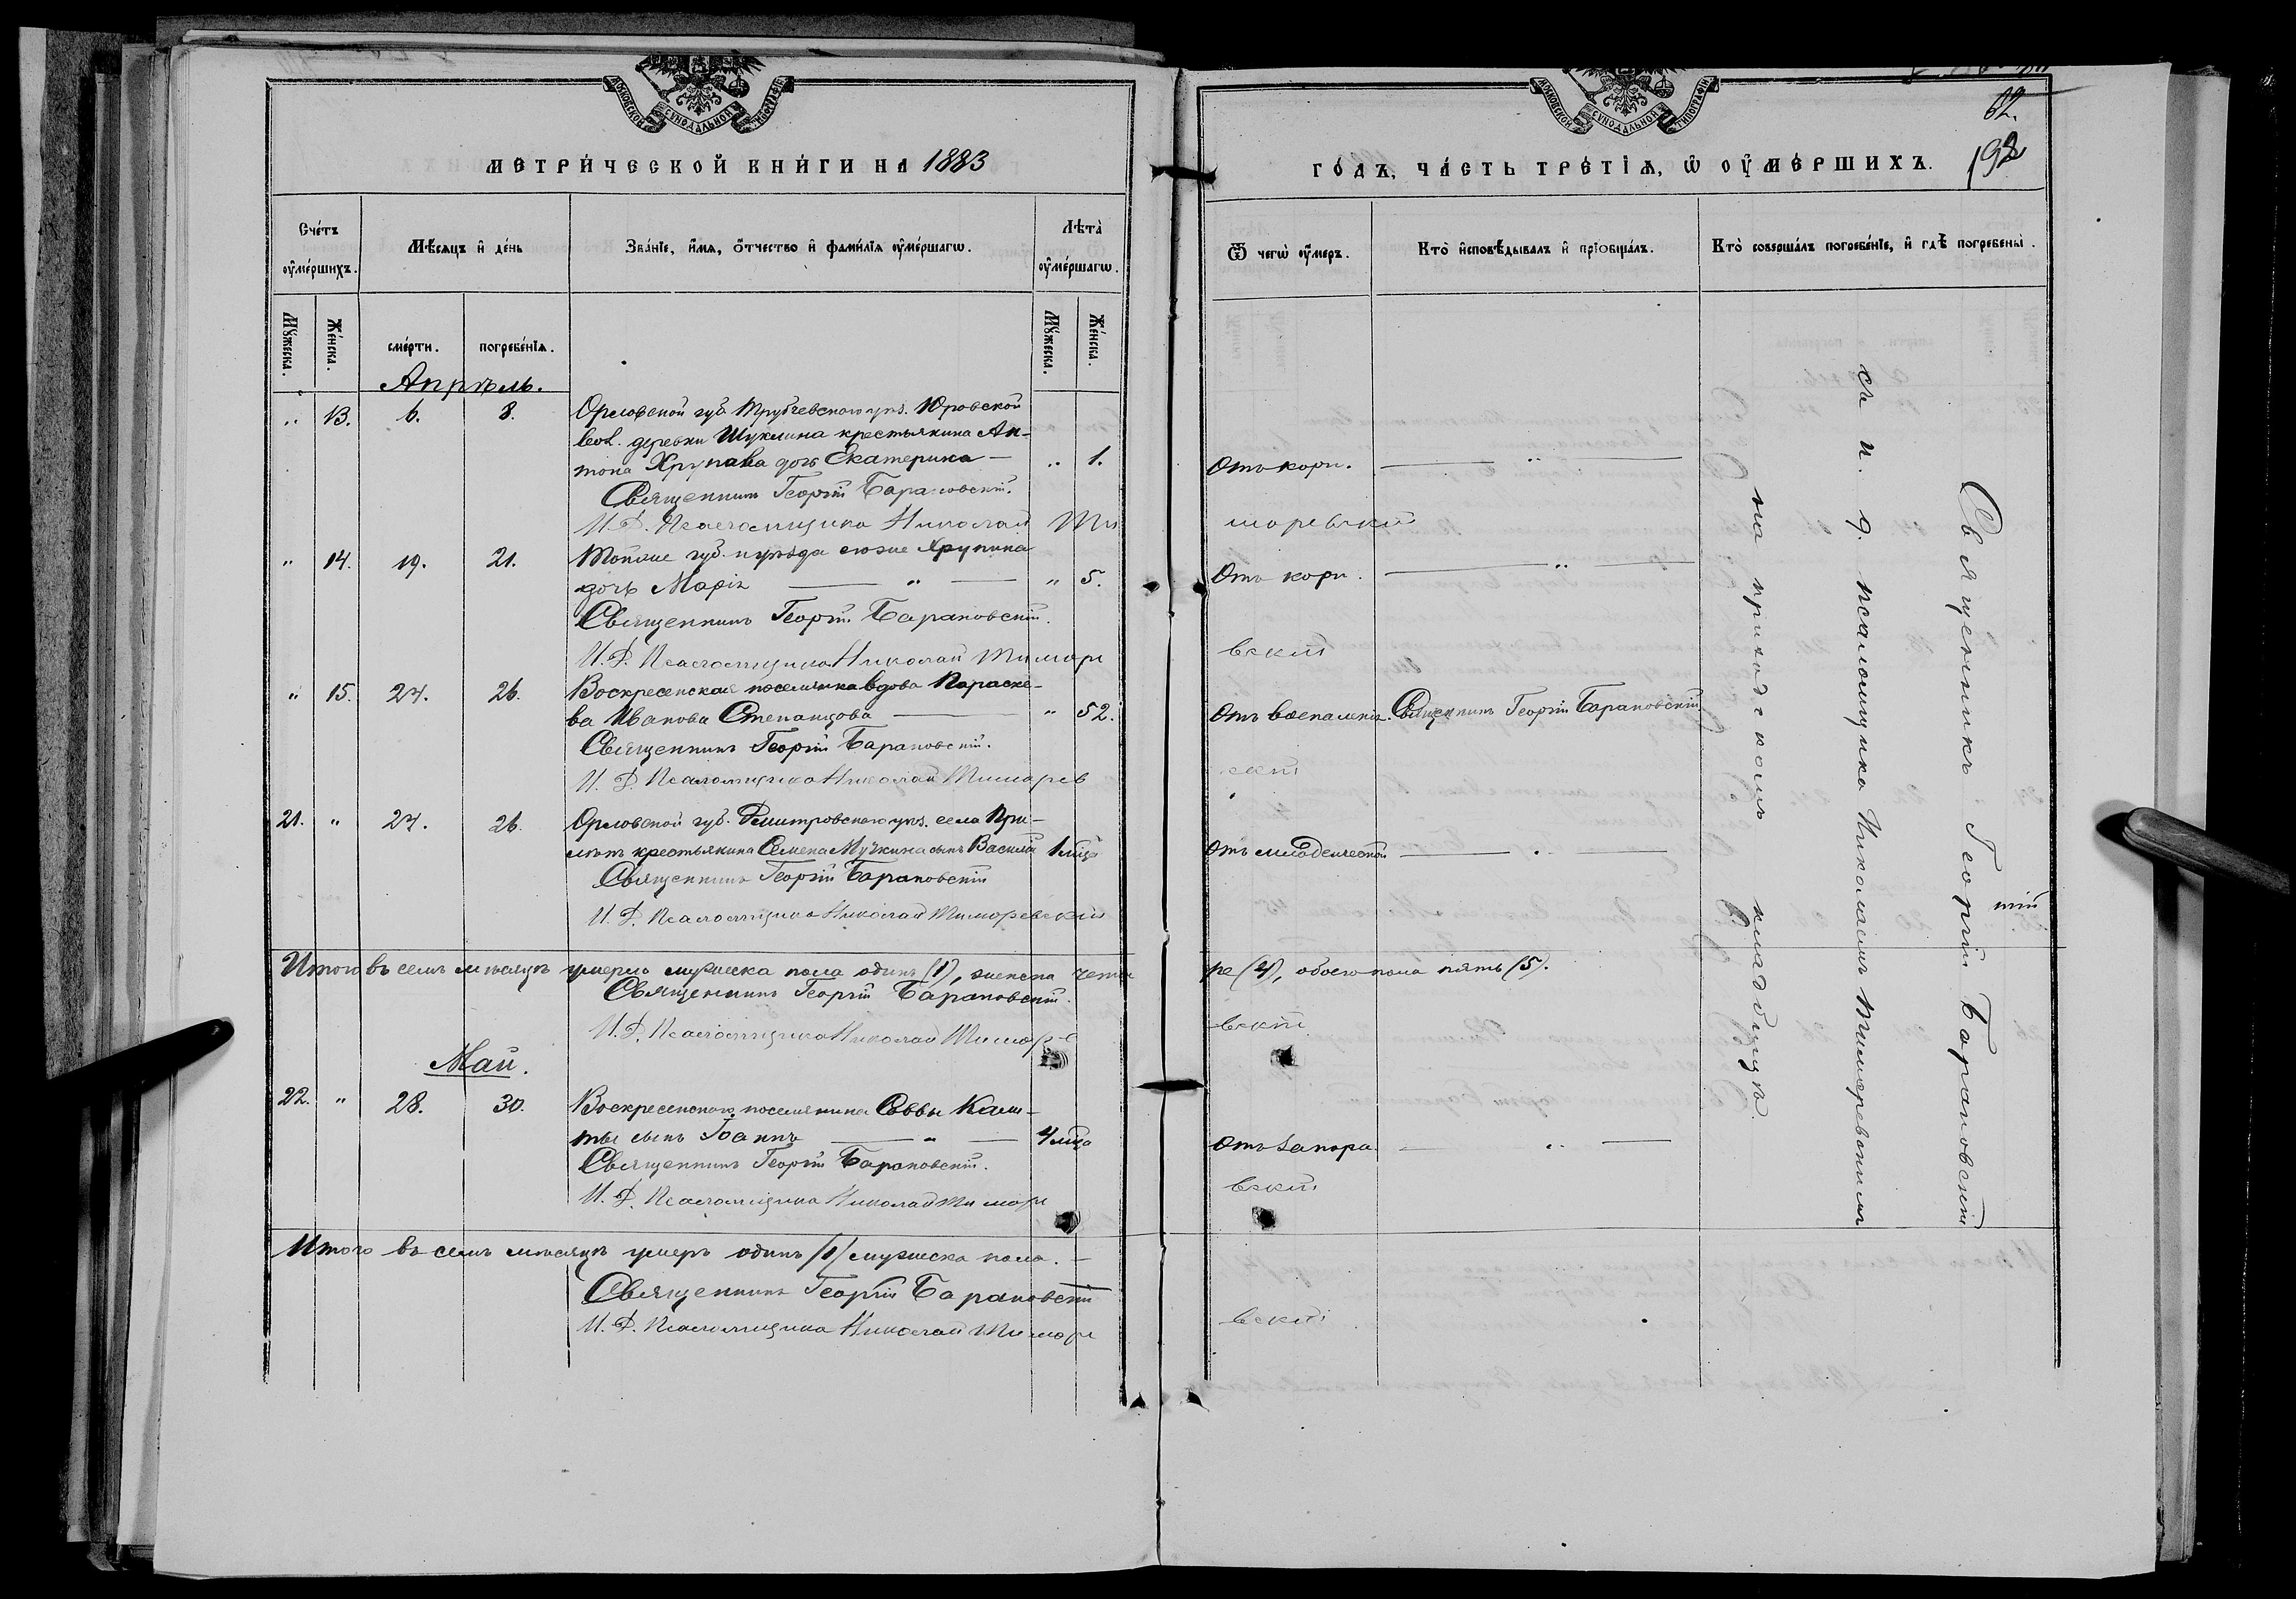 МОСКОВСКОЙ СѴНОДАЛЬНОЙ ТИПОГРАФІИ
МЕТРИ́ЧЕСКОЙ КНИ́ГИ НА 1883
Сче́тъ ᲂу҆ме́ршихъ.
Мѣ́сяцъ и҆ де́нь
Зва́нїе, и҆́мя, ѻ҆́тчество и҆ фами́лїя ᲂу҆ме́ршагѡ.
Лѣта̀ ᲂу҆ме́ршагѡ.
Мꙋ́жеска.
Же́нска.
сме́рти.
погребе́нїя.
Мꙋ́жеска.
Же́нска.
Апрѣль.
„ 13. 6. 8. Орловской губ Трубчевскаго уѣз. Юровской
вол. деревни Шуклина крестьянина Ан-
тона Хрупава дочь Екатерина — „ 1.
Священникъ Георгій Барановскій.
И. Д. Псаломщика Николай Ти
„ 14. 19. 21. Тойже губ. и уѣзда онаже Хрупина
дочь Марія — „ — „ 5.
Священникъ Георгій Барановскій.
И. Д. Псаломщика Николай Тиморе
„ 15. 24. 26. Воскресенская поселянка вдова Параске-
ва Иванова Степанцова — „ 52.
Священникъ Георгій Барановскій.
И. Д. Псаломщика Николай Тиморев
21. „ 24. 26. Орловской губ. Дмитровскаго уѣз. села При-
лѣпъ крестьянина Семена Мучкина сынъ Василій 1 мца
Священникъ Георгій Барановскій
И. Д. Псаломщика Николай Тиморевскій
Итого въ семъ мѣсяцѣ умерло мужеска пола одинъ (1), женска четы
Священникъ Георгій Барановскій.
И. Д. Псаломщика Николай Тиморе
Май.
22. „ 28. 30. Воскресенскаго поселянина Саввы Каш-
ты сынъ Іоаннъ — „ — 4 мца
Священникъ Георгій Барановскій.
И. Д. Псаломщика Николай Тиморе
Итого въ семъ мѣсяцѣ умеръ одинъ (1) мужеска пола. —
Священникъ Георгій Барановскій
И. Д. Псаломщика Николай Тиморе
МОСКОВСКОЙ СѴНОДАЛЬНОЙ ТИПОГРАФІИ
62.
192
ГО́ДЪ, ЧА́СТЬ ТРЕ́ТЇѦ, Ѡ҆ ОУ҆МЕ́РШИХЪ.
Ѿ чегѡ̀ ᲂу҆́меръ.
Кто̀ и҆сповѣ́дывалъ и҆ прїобща́лъ.
Кто̀ соверша́лъ погребе́нїе, и҆ гдѣ̀ погребены̀.
Отъ кори. — „ —
моревскій
Отъ кори. — „ —
вскій
Отъ воспаленія. Священникъ Георгій Барановскій
скій
Отъ младенческой — „ —
ре (4), обоего пола пять (5).
вскій
Отъ запора. — „ —
вскій
вскій
Священникъ Георгій Барановскій
съ и. д. псаломщика Николаемъ Тиморевскимъ
на приходскомъ кладбищѣ.